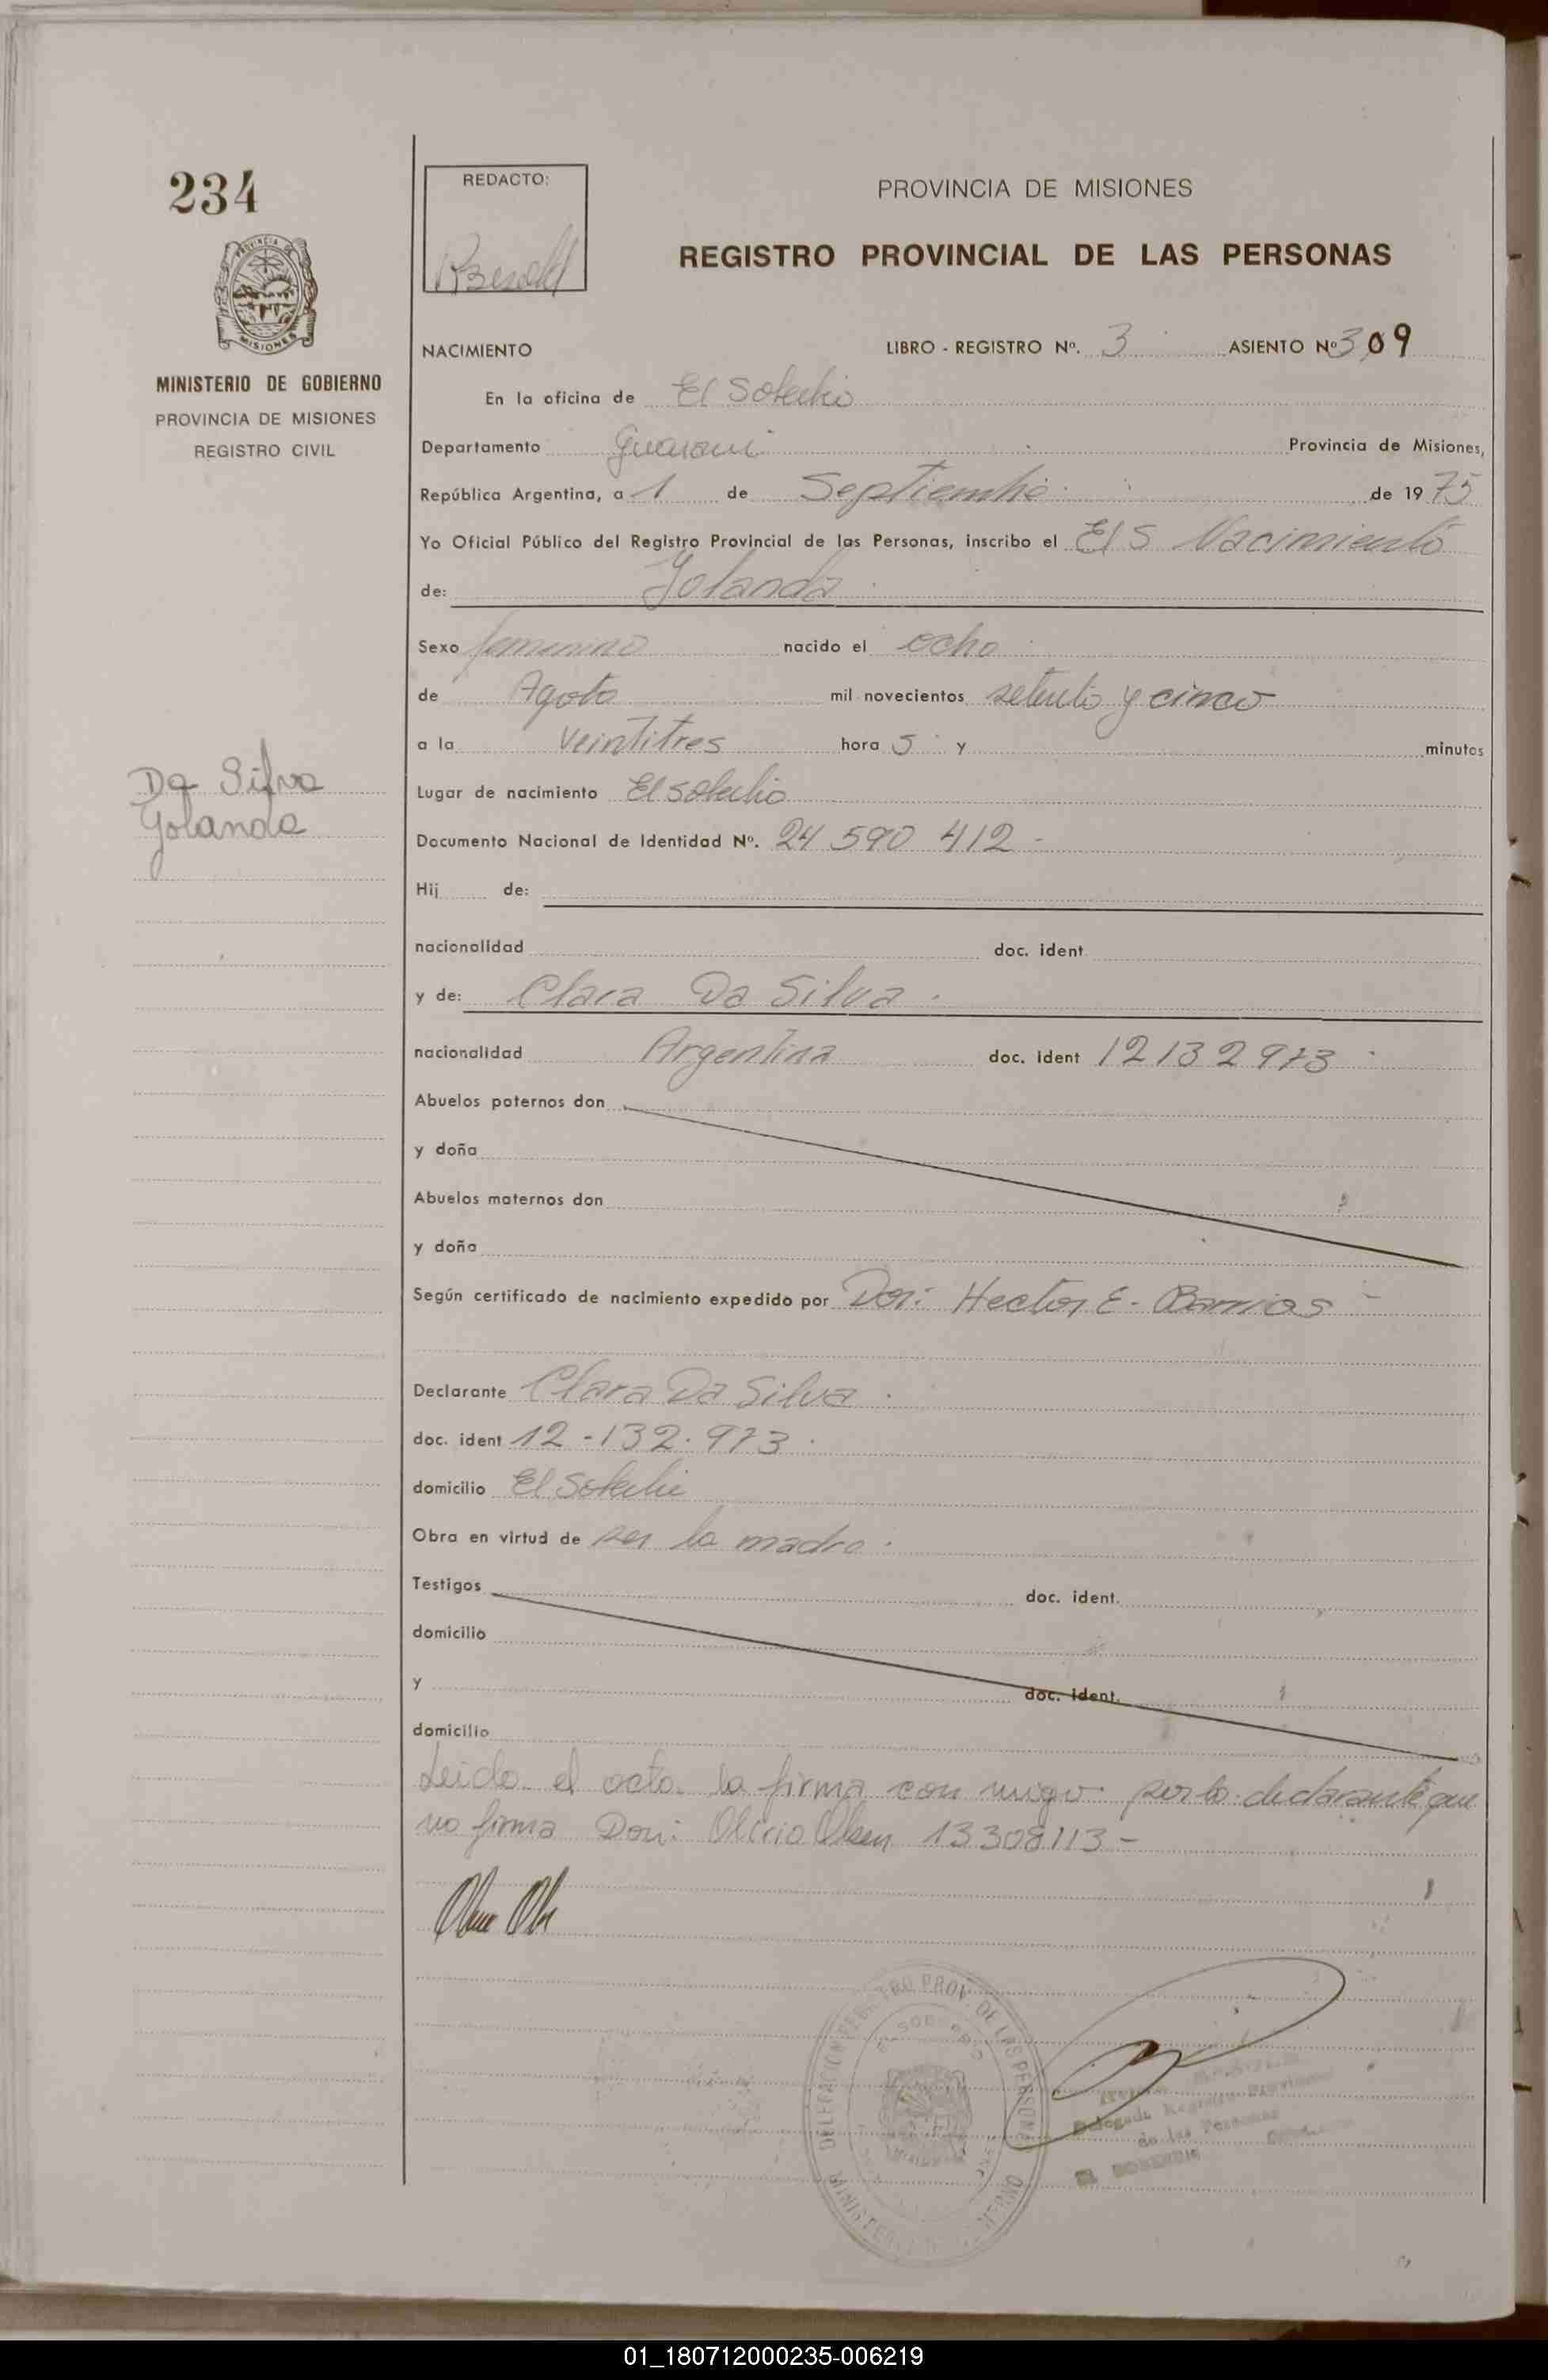 234
REDACTO:
PROVINCIA DE MISIONES
REGISTRO PROVINCIAL DE LAS PERSONAS
PROVINCIA DE
MISIONES
MINISTERIO DE GOBIERNO
PROVINCIA DE MISIONES
REGISTRO CIVIL
NACIMIENTO
LIBRO - REGISTRO Nº. 3 ASIENTO Nº 309
En la oficina de El Soberbio
Departamento Guarani Provincia de Misiones,
República Argentina, a 1 de Septiembre de 1975
Yo Oficial Público del Registro Provincial de las Personas, inscribo el El S Nacimiento
de: Yolanda
Sexo femenino nacido el ocho
de Agosto mil novecientos setenta y cinco
a la veintitres hora s y minutos
Da Silva
Yolanda
Lugar de nacimiento El Soberbio
Documento Nacional de Identidad Nº. 24 590 412 -
Hij de:
nacionalidad doc. ident
y de: Clara Da Silva
nacionalidad Argentina doc. ident 12132973
Abuelos paternos don
y doña
Abuelos maternos don
y doña
Según certificado de nacimiento expedido por Don: Hector E. Barrios -
Declarante Clara Da Silva
doc. ident 12-132.973
domicilio El Soberbio
Obra en virtud de ser la madre
Testigos doc. ident.
domicilio
y doc. ident.
domicilio
Leido el acto la firma con migo por la declarante que
no firma Don: Olsen 13308113 -
DELEGACION REGISTRO PROV. DE LAS PERSONAS
EL SOBERBIO
MINISTERIO DE GOBIERNO
Delegado Registro Provincial
de las Personas
EL SOBERBIO
01_180712000235-006219